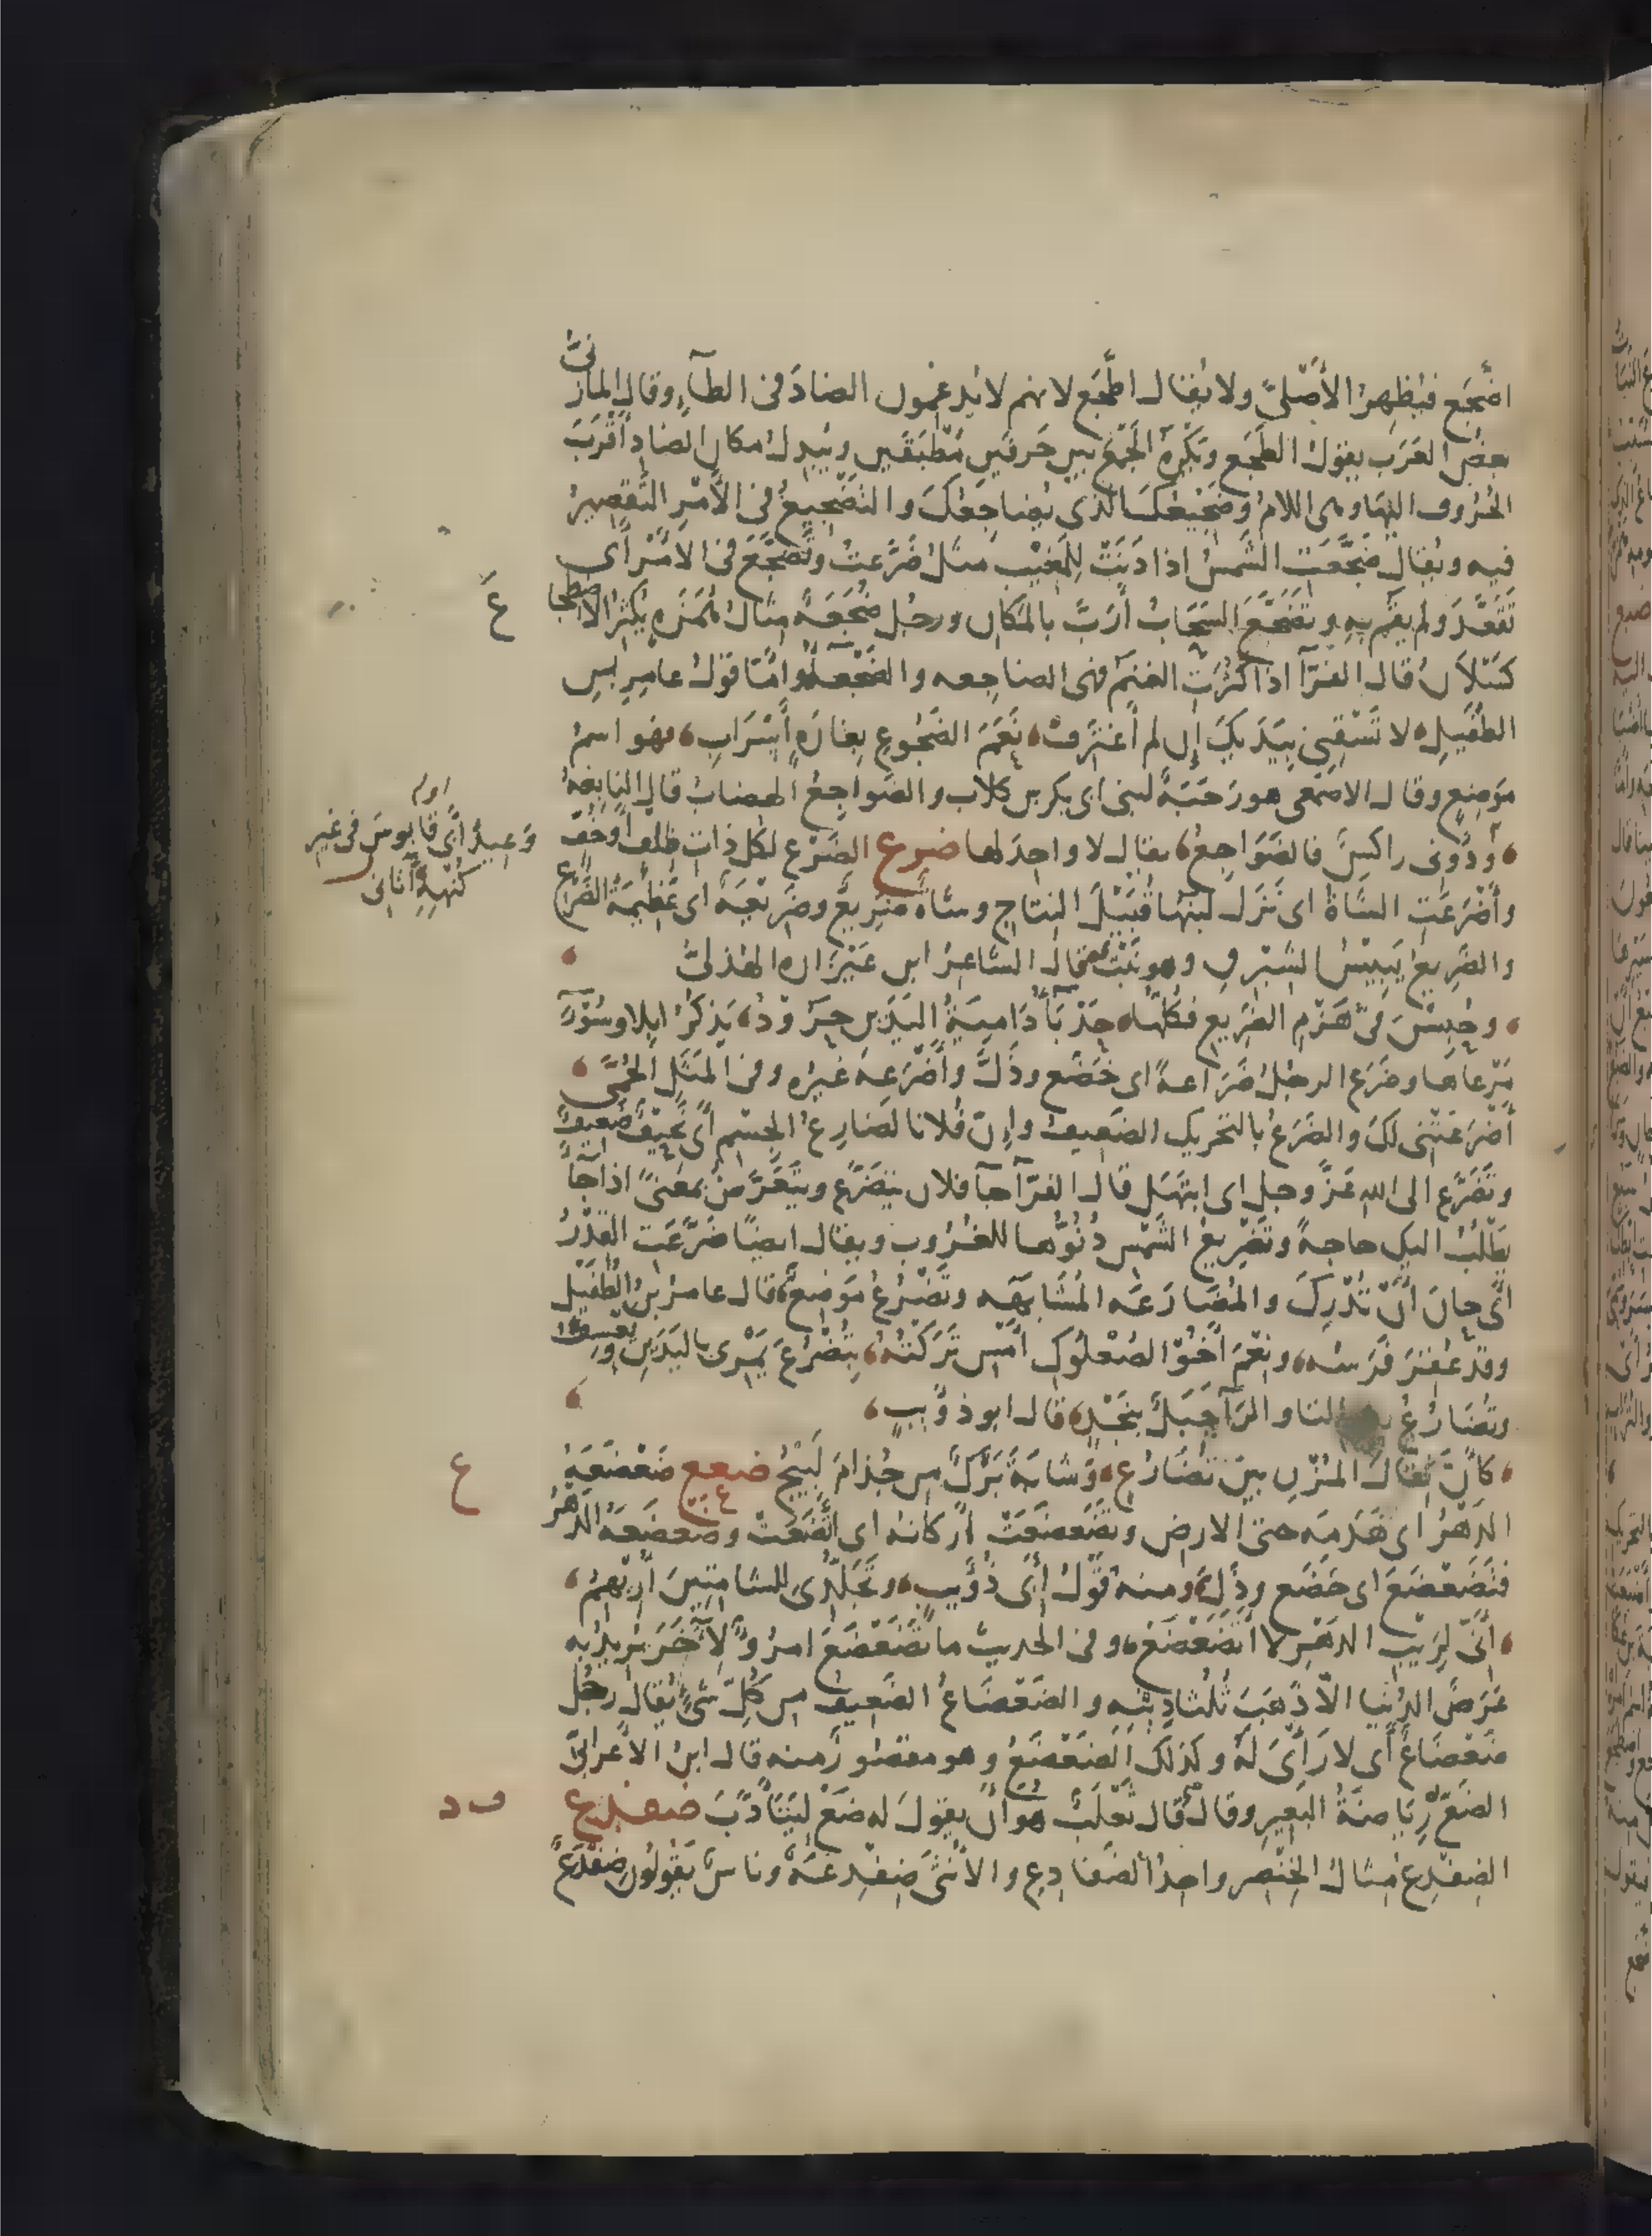 اضّجع فيُظهِرُ الأصْليَّ ولا يُقالـ اطّجع لانهم لا يُدغِمُون الضادَ فى الطآءِ وقالـ المازنىُّ
بعضُ العَرَب يقولُ الطجع ويَكْرَه الجَمْعَ بين حَرفَيْنِ مُطْبَقَينِ ويُبدِلُ مكان الضادِ أَقْرَبَ
الحُرُوف اليها وهى اللامُ وضَجِيعُكَ الذى يُضاجِعُكَ والتَضْجِيعُ فى الأَمْرِ التَّقصِيرُ
فيه ويُقالـ ضَجَّعَتِ الشمسُ اذا دَنَتْ لِلمَغِيْب مثلُ ضَرَّعتْ وتَضَجَّعَ فى الأَمْر أى
تَقَعَّدَ ولم يقُم بِهِ وتَضَجَّعَ السَّحَابُ أَرَبَّ بالمَكانِ ورجُل ضُجَعَةٌ مثالُ هُمَزَه يُكثِرُ الاضطجاعَ
كَسْلاَنُ قالـ الفرّآ اذا كثُرَتِ الغنمُ فهى الضاجِعه والضَّجْعَآءُ وامّا قولُ عامرِ بنِ
الطفَيلِ، لا تَسْقِنِى بِيَدَيكَ إِن لم أَغترِفْ، نَعَمَ الضَّجُوعِ بِغارَةٍ أَسْرَابِ، فهو اسمُ
مَوضِعٍ وقالـ الاصمَعى هو رَحَبَةٌ لبنى ابى بكر بن كلاب والضواجِعُ الهضابُ قالـ النابغةُ
، ودُونى راكِسٌ فالضَوَاجِعُ، يقالـ لا واحِدَ لها ضرع الضَرْع لكل ذات ظلف أو خف
وأَضْرَعَتِ الشَّاةُ اى نَزَلـ لَبَنُها قُبَيْلَ النتاج وشاة ضرِيعٌ وضَرِيعَةٌ اى عَظِيمَةُ الضَّرْعِ
والضَّرِيعُ يَبِيسُ الشِّبْرِقِ وهو نَبْتٌ قالـ الشاعرُ ابن عَيْزَاره الهُذلىُّ
، وحُبِسْنَ فى هَزْمِ الضَرِيعِ فكُلُّها، حَدْبَآءُ دَامِيَةُ اليَدَيْنِ حَرُوْدُ، يَذكُرُ إبِلا وسُوْءَ
مَرْعاها وضَرَع الرجُلُ ضَرَاعةً اى خَضَع وذَلَّ وأَضْرَعهُ غيْرُه وفى المَثَلِ الحُمَّى
أَضْرَعَتْنى لكَ والضَرَعُ بالتحريك الضعِيفُ وإن فُلانا لضَارِعُ الجِسْمِ أى نَحِيفٌ ضعِيفٌ
وتَضَرَّع الى الله عَزَّ وجل اى ابتَهَل قالـ الفرّآ جآ فلان يتضَرَّع ويتَعَرَّضُ بمعنىً اذا جآ
يَطْلُبُ اليك حاجةً وتَضْرِيعُ الشَّمس دُنُوُّها للغُرُوب ويقالـ ايضًا ضَرَّعَتِ القِدْرُ
أى حانَ أَنْ تُدْرِكَ والمُضَارَعَه المُشَابَهَه وتَضْرُعُ مَوضِعٌ، قالـ عامرُ بنُ الطُّفَيْل
وقد عُقِرَ فَرَسُه، ونِعْمَ أَخُو الصُعْلُوكِ أَمْسِ تَرَكْتُهُ، بِتَضْرُعَ يَمْرِى باليَدَيْنِ ويَعْسِفُ
وتُضَارُعُ التا والرآ جَبَلٌ بنَجْدٍ، قالـ ابو ذؤَيبٍ،
، كأَنَّ ثِقَالَ المُزْنِ بينَ تُضَارُعٍ، وَشابَةَ بَرْكٌ مِن جُذَامَ لَبِيْجُ ضعع ضَعْضَعَهُ
الدهْرُ اى هَدَمَه حتى الارض وتَضَعضَعَتْ أَركانُه اى اتَّضَعَتْ وضَعضَعَهُ الدهرُ
فتَضَعْضَعَ اى خَضَع وذِلَّ، ومنه قَوْلُ أَبى ذُؤَيبٍ، وتَجَلُّدِى للشامِتِينَ أُرِيْهِمُ،
، أَنّى لِرَيْبِ الدهْرِ لا أَتضَعْضَعُ، وفى الحديثِ ما تَضَعْضَعَ امرُؤٌ لآخَرَ يُريدُ بِهِ
عَرَضَ الدُّنيا الاّ ذَهَبَ ثُلُثا دِيْنِه والضَعْضَاعُ الضعِيفُ مِن كُلِّ شىْءٍ يُقالُ رجُلٌ
ضَعْضَاعٌ أَى لا رَأْىَ لَهُ وكذلكَ الضَعْضَعُ وهو مقصُور مِنه قالـ ابنُ الأَعرابىّ
الضَعُّ رِيَاضةُ البَعِيرِ وقالـ قال ثَعْلَبٌ هُوَ أَنْ يقولَ له ضَعْ لِيَتَأَدَّبَ ضفدع
الضِفدِعُ مثالُ الخِنْصِر واحِدُ الضَفادِعِ والأُنثَى ضِفدِعَةٌ وناسٌ يَقُولُون ضِفْدَعٌ
عَ
اوله
وعِيدُ أَبى قابوسَ فى غيرِ
كُنْهِهِ أَتانى
ع
ف د